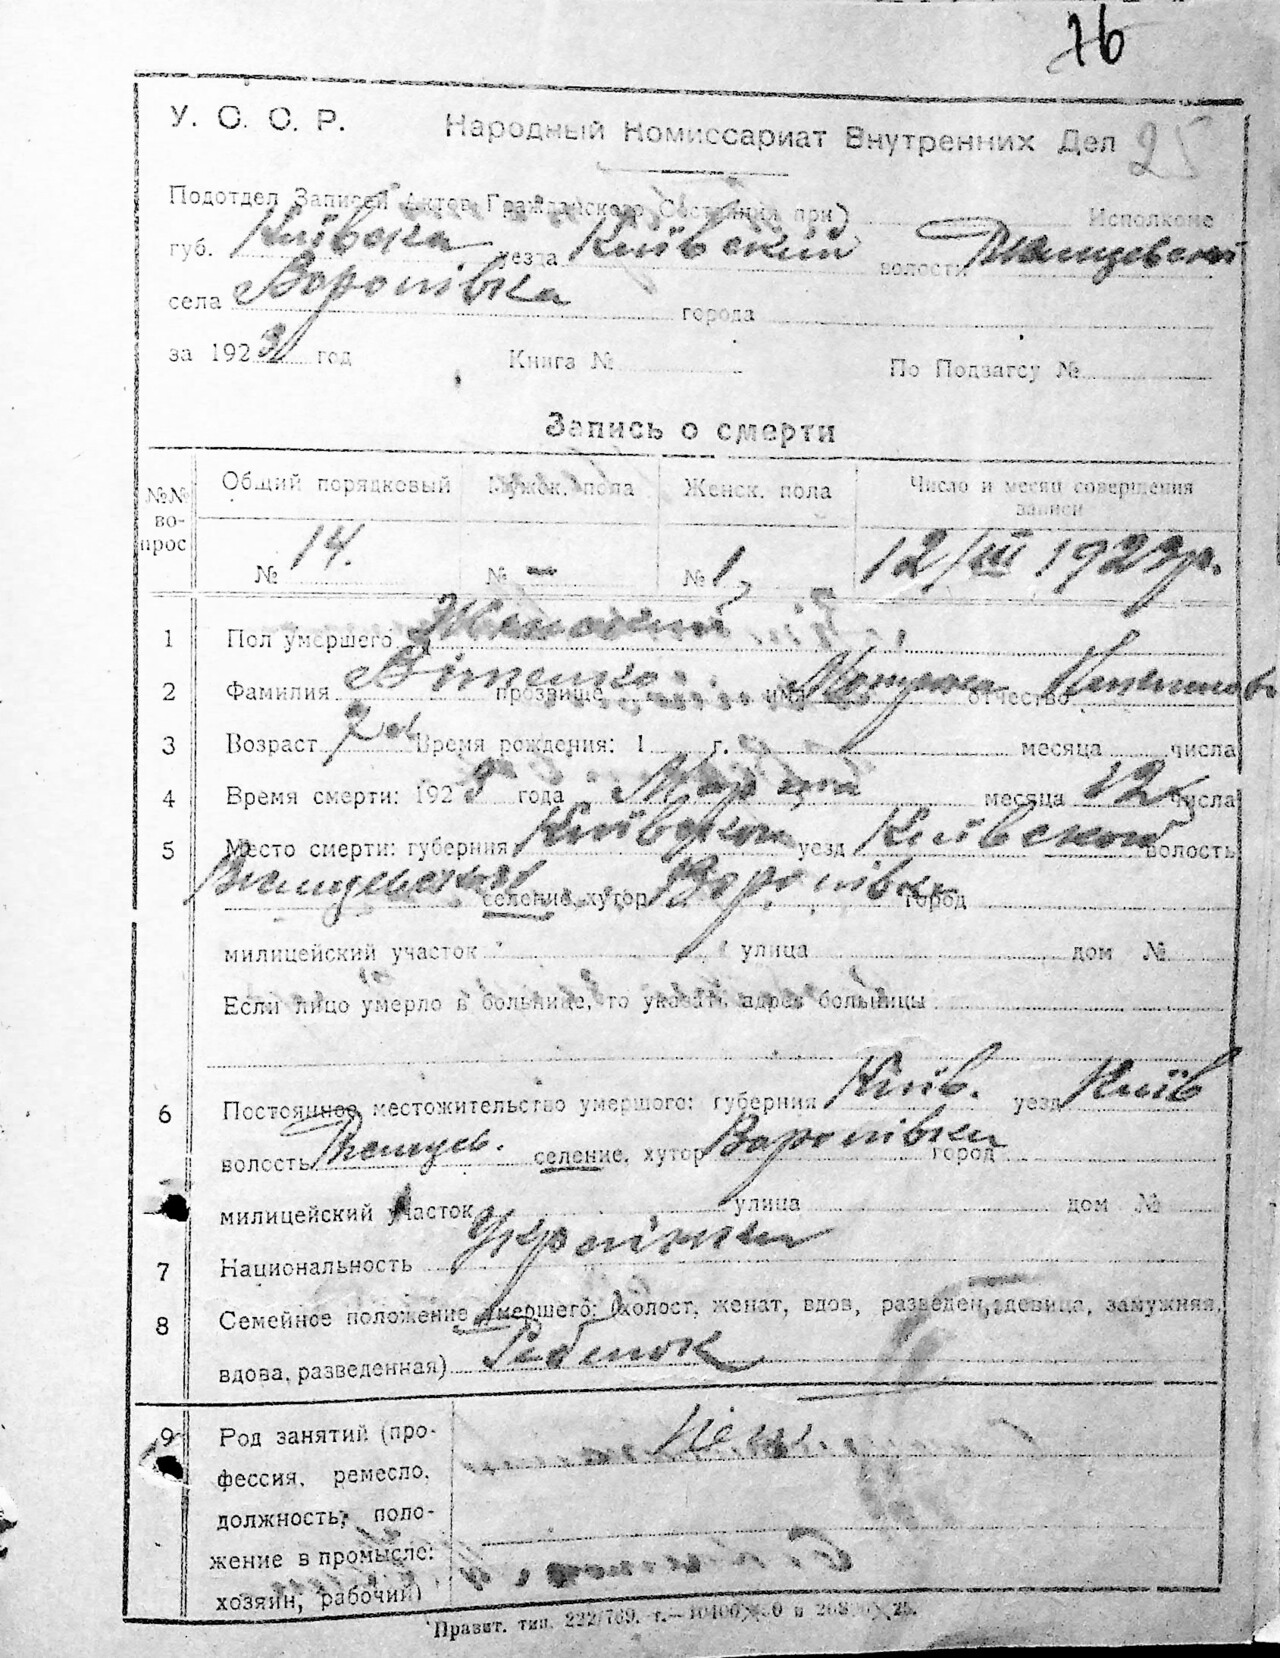 76
У. С. С. Р. Народный Комиссариат Внутренних Дел 25
Подотдел Записей Актов Гражданского Состояния при Исполкоме
губ. Київска уезда Київский волости
села Воропівка города
за 1923 год Книга № По Подзагсу №
Запись о смерти
№№ вопрос Общий порядковый Мужск. пола Женск. пола Число и месяц совершения записи
№ 14. № — № 1 12/III 1923 р.
1 Пол умершего Женский
2 Фамилия прозвище имя Мотрона отчество
3 Возраст Время рождения: 1 г. месяца числа
4 Время смерти: 1923 года Марта месяца 12 числа
5 Место смерти: губерния Київской уезд Київской волость
селение, хутор Воропівка город
милицейский участок улица дом №
Если лицо умерло в больнице, то указать адрес больницы
6 Постоянное местожительство умершого: губерния Київ. уезд Київ
волость селение, хутор Воропівка город
милицейский участок улица дом №
7 Национальность Українка
8 Семейное положение умершего: (холост, женат, вдов, разведен, девица, замужняя,
вдова, разведенная) Ребенок
9 Род занятий (про-
фессия, ремесло,
должность, поло-
жение в промысле:
хозяин, рабочий)
Правит. тип.